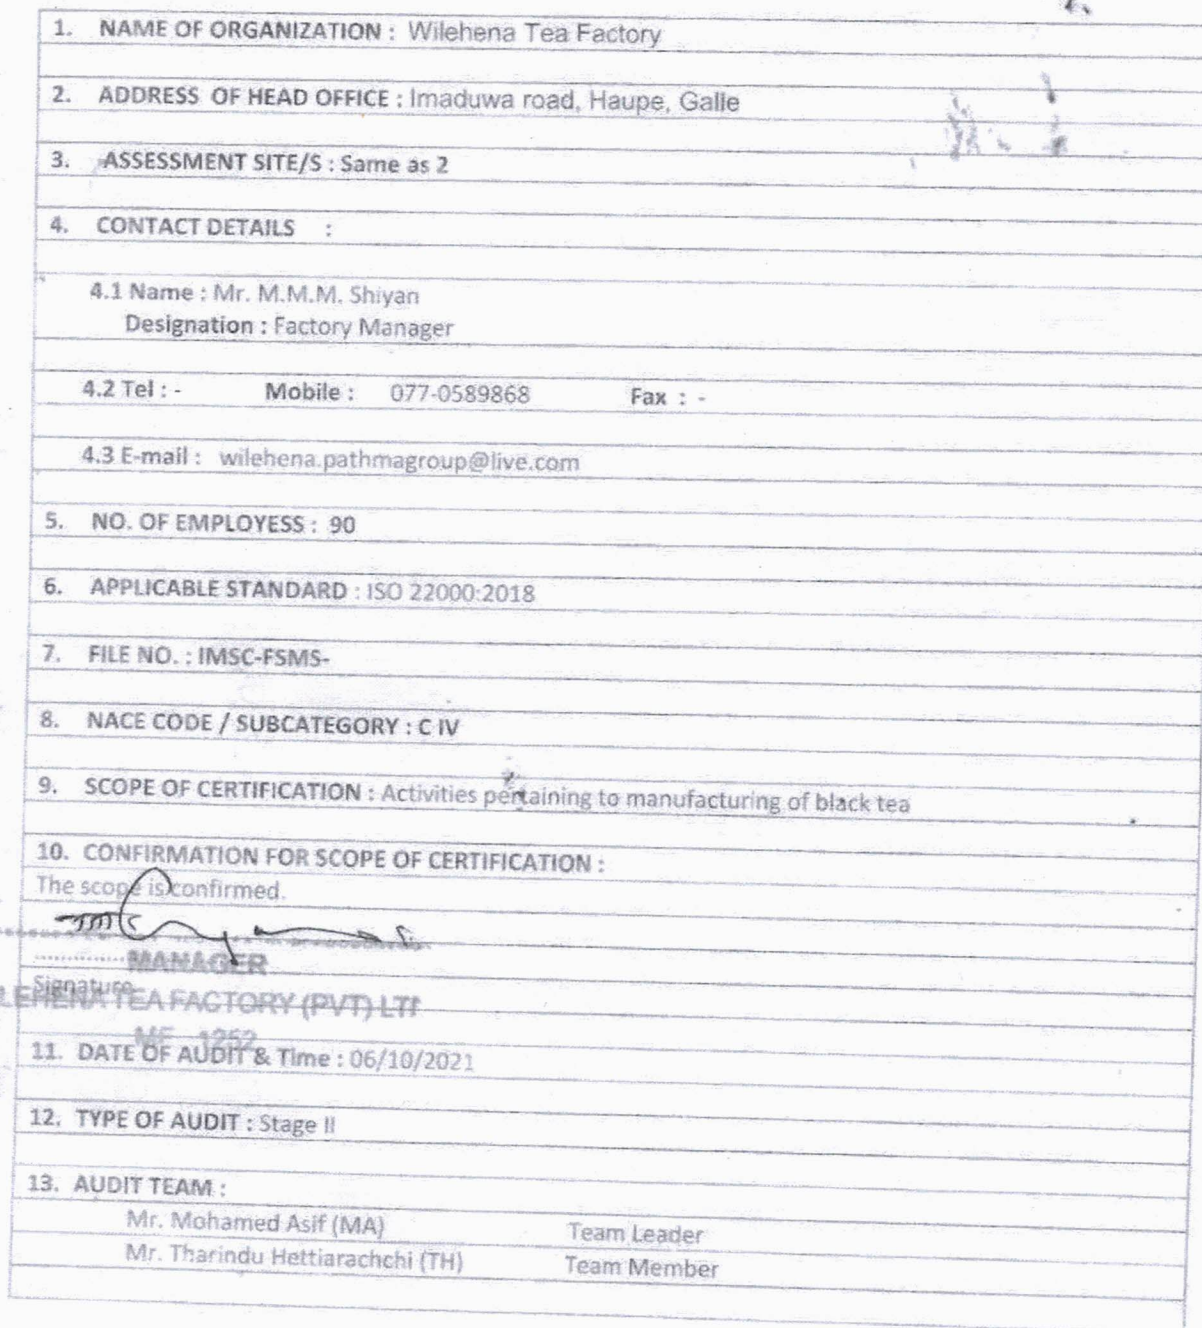 1. NAME OF ORGANIZATION : Wilehena Tea Factory
2. ADDRESS OF HEAD OFFICE : Imaduwa road, Haupe, Galle
3. ASSESSMENT SITE/S : Same as 2
4. CONTACT DETAILS :
4.1 Name : Mr. M.M.M. Shiyan
Designation : Factory Manager
4.2 Tel : - Mobile : 077-0589868 Fax : -
4.3 E-mail : wilehena.pathmagroup@live.com
5. NO. OF EMPLOYESS : 90
6. APPLICABLE STANDARD : ISO 22000:2018
7. FILE NO. : IMSC-FSMS-
8. NACE CODE / SUBCATEGORY : C IV
9. SCOPE OF CERTIFICATION : Activities pertaining to manufacturing of black tea
10. CONFIRMATION FOR SCOPE OF CERTIFICATION :
The scope is confirmed.
MANAGER
Signature
LEHENA TEA FACTORY (PVT) LT
MF 1252
11. DATE OF AUDIT & Time : 06/10/2021
12. TYPE OF AUDIT : Stage II
13. AUDIT TEAM :
Mr. Mohamed Asif (MA) Team Leader
Mr. Tharindu Hettiarachchi (TH) Team Member